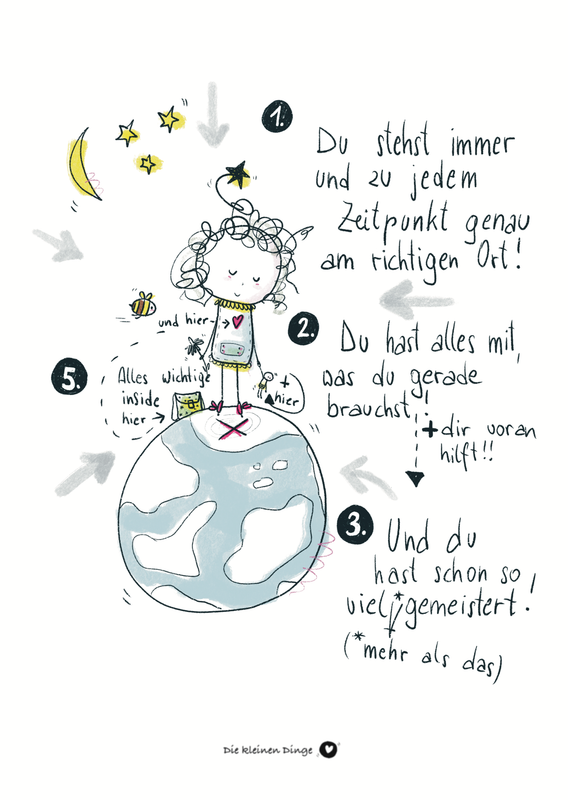 1.
Du stehst immer
und zu jedem
Zeitpunkt genau
am richtigen Ort!
2.
Du hast alles mit,
was du gerade
brauchst!
+dir voran
hilft!!
3.
Und du
hast schon so
viel* gemeistert!
(*mehr als das)
5.
und hier
Alles wichtige
inside
hier
+
hier
Die kleinen Dinge